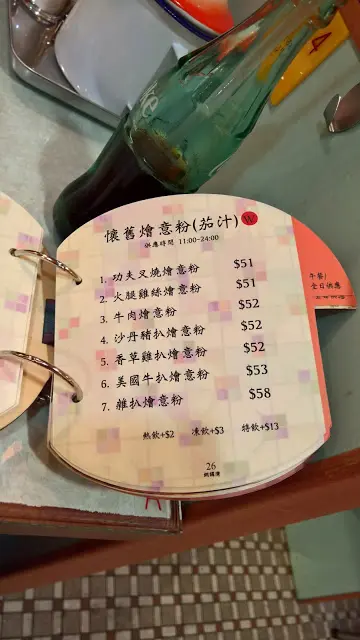 懷舊燴意粉(茄汁) W
供應時間 11:00-24:00
1. 功夫叉燒燴意粉 $51
2. 火腿雞絲燴意粉 $51
3. 牛肉燴意粉 $52
4. 沙丹豬扒燴意粉 $52
5. 香草雞扒燴意粉 $52
6. 美國牛扒燴意粉 $53
7. 雜扒燴意粉 $58
熱飲+$2 凍飲+$3 特飲+$13
26
午餐/
全日供應
4